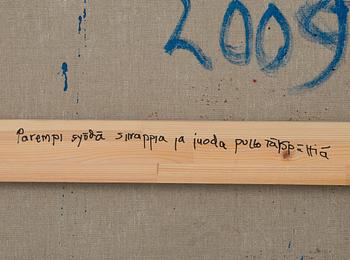 2009
Parempi syödä sinappia ja juoda pullo tärpättiä